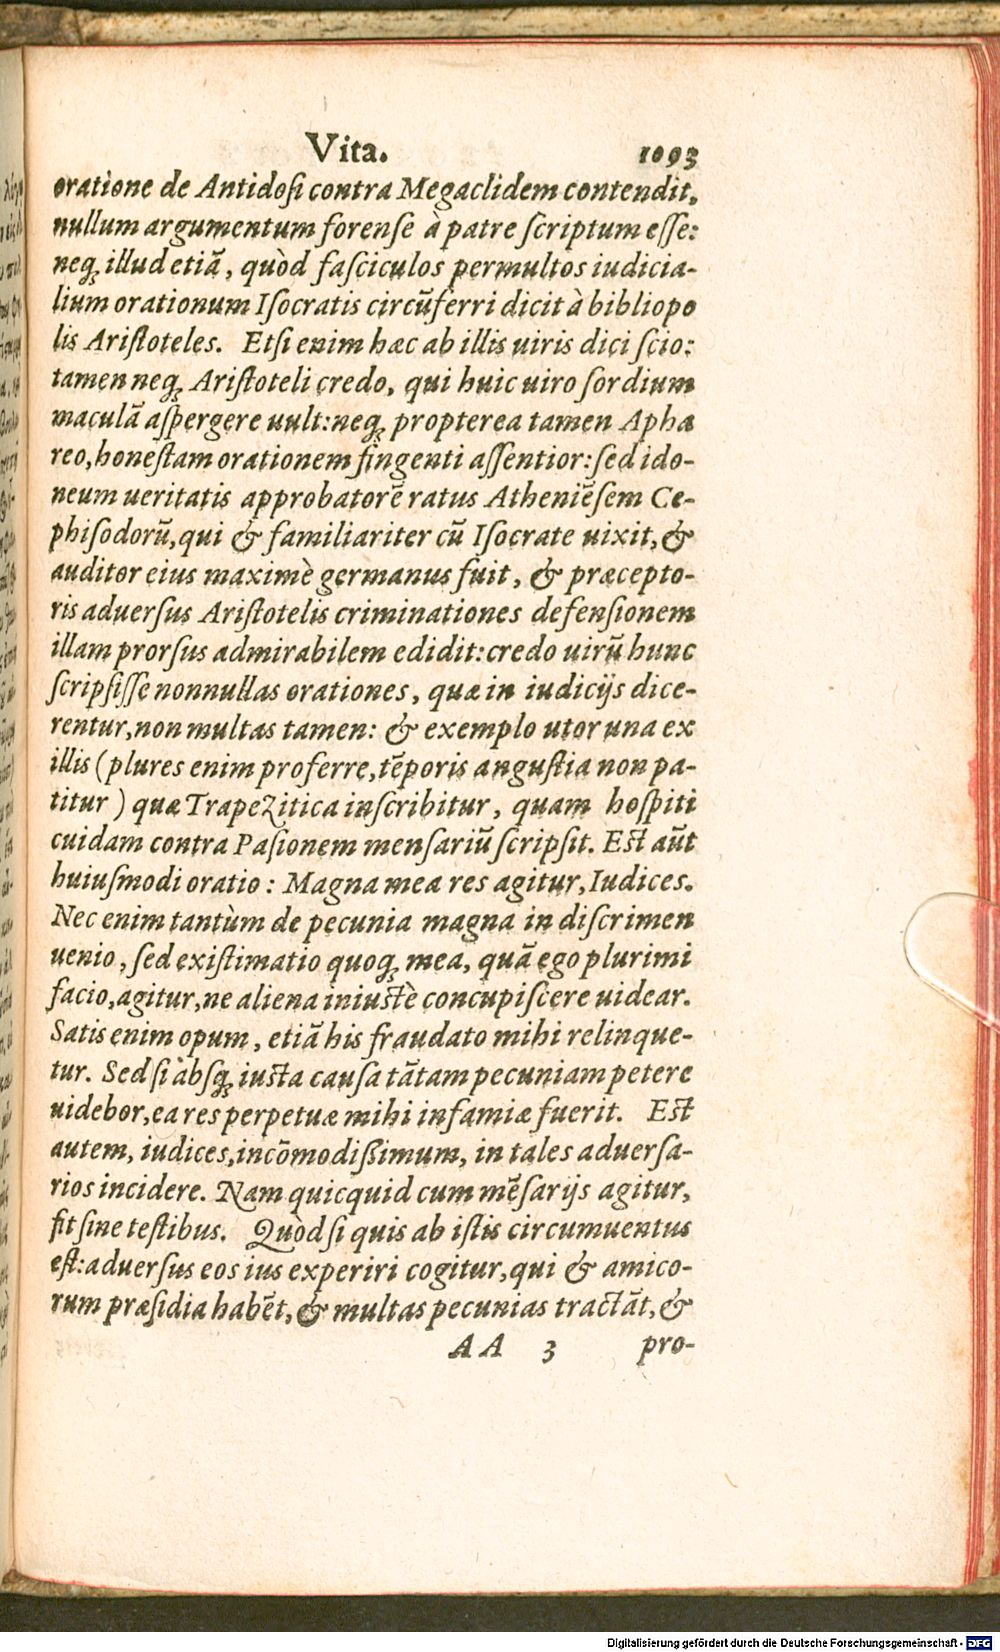 Vita. 1093
oratione de Antidosi contra Megaclidem contendit,
nullum argumentum forense à patre scriptum esse:
neq; illud etiã, quòd fasciculos permultos iudicia-
lium orationum Isocratis circũferri dicit à bibliopo
lis Aristoteles. Etsi enim hæc ab illis uiris dici scio:
tamen neq; Aristoteli credo, qui huic uiro sordium
maculã aspergere uult: neq; propterea tamen Apha
reo, honestam orationem fingenti assentior: sed ido-
neum ueritatis approbatorẽ ratus Atheniẽsem Ce-
phisodorũ, qui & familiariter cũ Isocrate uixit, &
auditor eius maximè germanus fuit, & præcepto-
ris aduersus Aristotelis criminationes defensionem
illam prorsus admirabilem edidit: credo uirũ hunc
scripsisse nonnullas orationes, quæ in iudicijs dice-
rentur, non multas tamen: & exemplo utor una ex
illis (plures enim proferre, tẽporis angustia non pa-
titur) quæ Trapezitica inscribitur, quam hospiti
cuidam contra Pasionem mensariũ scripsit. Est aũt
huiusmodi oratio: Magna mea res agitur, Iudices.
Nec enim tantùm de pecunia magna in discrimen
uenio, sed existimatio quoq; mea, quã ego plurimi
facio, agitur, ne aliena iniustè concupiscere uidear.
Satis enim opum, etiã his fraudato mihi relinque-
tur. Sed si absq; iusta causa tãtam pecuniam petere
uidebor, ea res perpetuæ mihi infamiæ fuerit. Est
autem, iudices, incõmodissimum, in tales aduersa-
rios incidere. Nam quicquid cum mẽsarijs agitur,
fit sine testibus. Quòd si quis ab istis circumuentus
est: aduersus eos ius experiri cogitur, qui & amico-
rum præsidia habẽt, & multas pecunias tractãt, &
AA 3 pro-
Digitalisierung gefördert durch die Deutsche Forschungsgemeinschaft - DFG